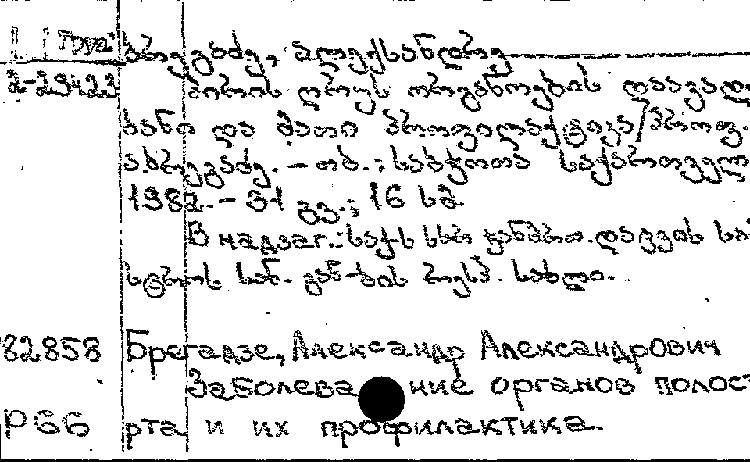 Груз
ბრეგაძე, ალექსანდრე
2-29423 პირის ღრუს ორგანოების დაავად
ბანი და მათი პროფილაქტიკა/პროფ.
ა. ბრეგაძე. – თბ.: საბჭოთა საქართველ
1982. – 31 გვ.; 16 სმ.
В надзаг.: საქ. სსრ ჯანმრთ. დაცვის სამი
სტროს სან. გან-ბის რესპ. სახლი.
82858 Брегадзе, Александр Александрович
Заболевание органов полост
Р66 рта и их профилактика.